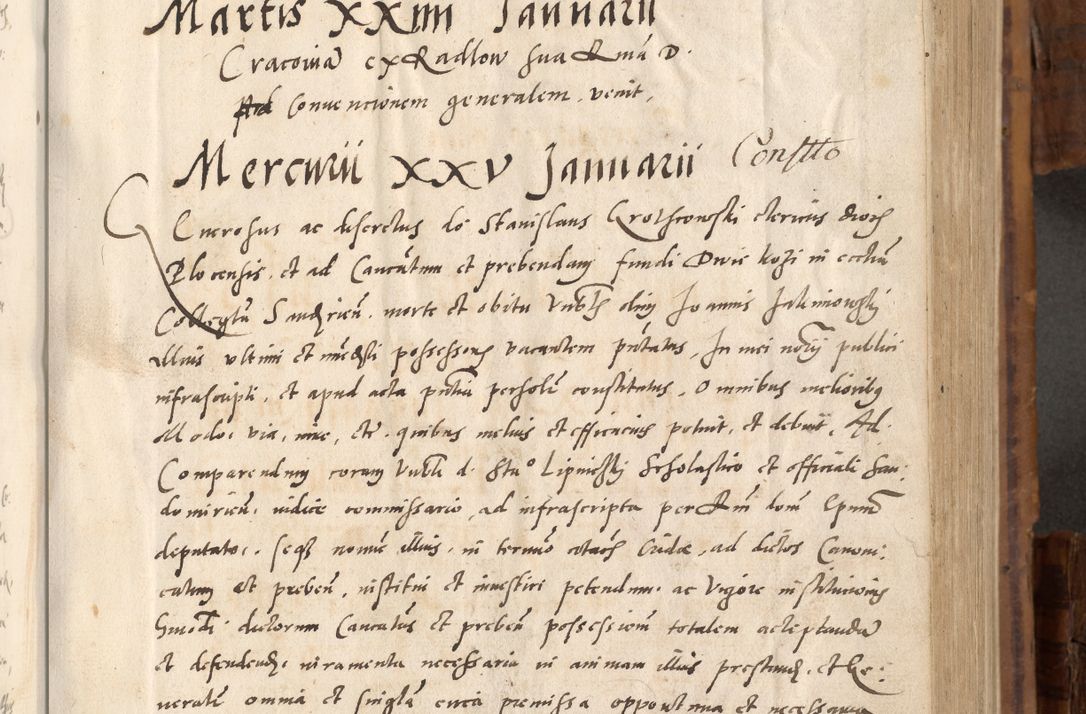 Martis XXIIII Januarii
Cracoviā ex Radlow sua R̄ma D.
Ad Convencionem generalem venit,
Mercurii XXV Januarii Constto
Generosus ac discretus do Stanislaus Grothcowski clericus dioc̄
Plocensis, et ad Canc̄atum et prebendam fundi Dwie kozi in ecclīa
Collegt̄a Sand̄ricen̄. morte et obitu Veb̄lis olim Joannis
illius ultimi et im̄edti possessoris vacantem pn̄tatus, In mei not̄ii publici
infrascripti, et apud acta pn̄tia personl̄r constitutus, Omnibus melioribꝫ
Modo, via, iure, etc̄. quibus melius et efficacius potuit, et debuit, Ad
Comparendum coram Veb̄li d. Sta° Lipnickij Scholastico et officiali San:
domirien̄. iudice commissario, ad infrascripta per R̄m dom̄ Ep̄um
deputato, seqꝫ nomine illius, in termino ad dictos Canoni:
catum et preben̄, institui et investiri petendum. ac vigore institucionis
hmo͞di dictorum Canc̄atus et preben̄ possessionem totalem acceptandā
et defendend̄, iuramenta necessaria in animam illius prestand̄, et Ge:
neralr̄ omnia et singula circa premissa opportuna et necessaria